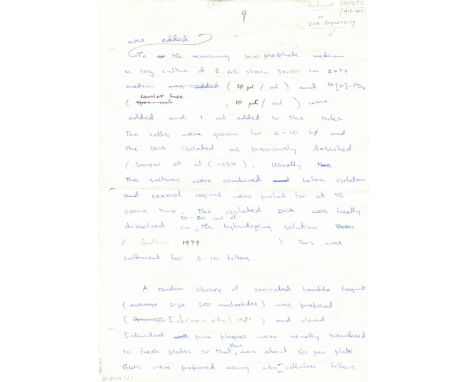 9
Frederick SANGER
DNA Sequencing
was added
To the remaining low phosphate medium
a log culture of E. coli strain JM101 in 2xTY
medium was added (10 μl / ml) and
(carrier free , 10 / ml) were
added and 1 ml added to the tubes.
The cells were grown for 6-10 h and
the DNA isolated as previously described
(Sanger et al (1980). Usually the
the cultures were combined and before isolation
and several regions were probed for at the
same time. The isolated DNA was finally
dissolved in 20- ml of the hybridizing solution
( Southern 1979 ) This was
sufficient for 5-10 filters.
A random library of sonicated lambda fragments
(average size 500 nucleotides) was prepared
( et al 1981 ) and cloned
Individual pure plaques were usually transferred
to fresh plates so that there were about 50 per plate
Blots were prepared using nitrocellulose filters